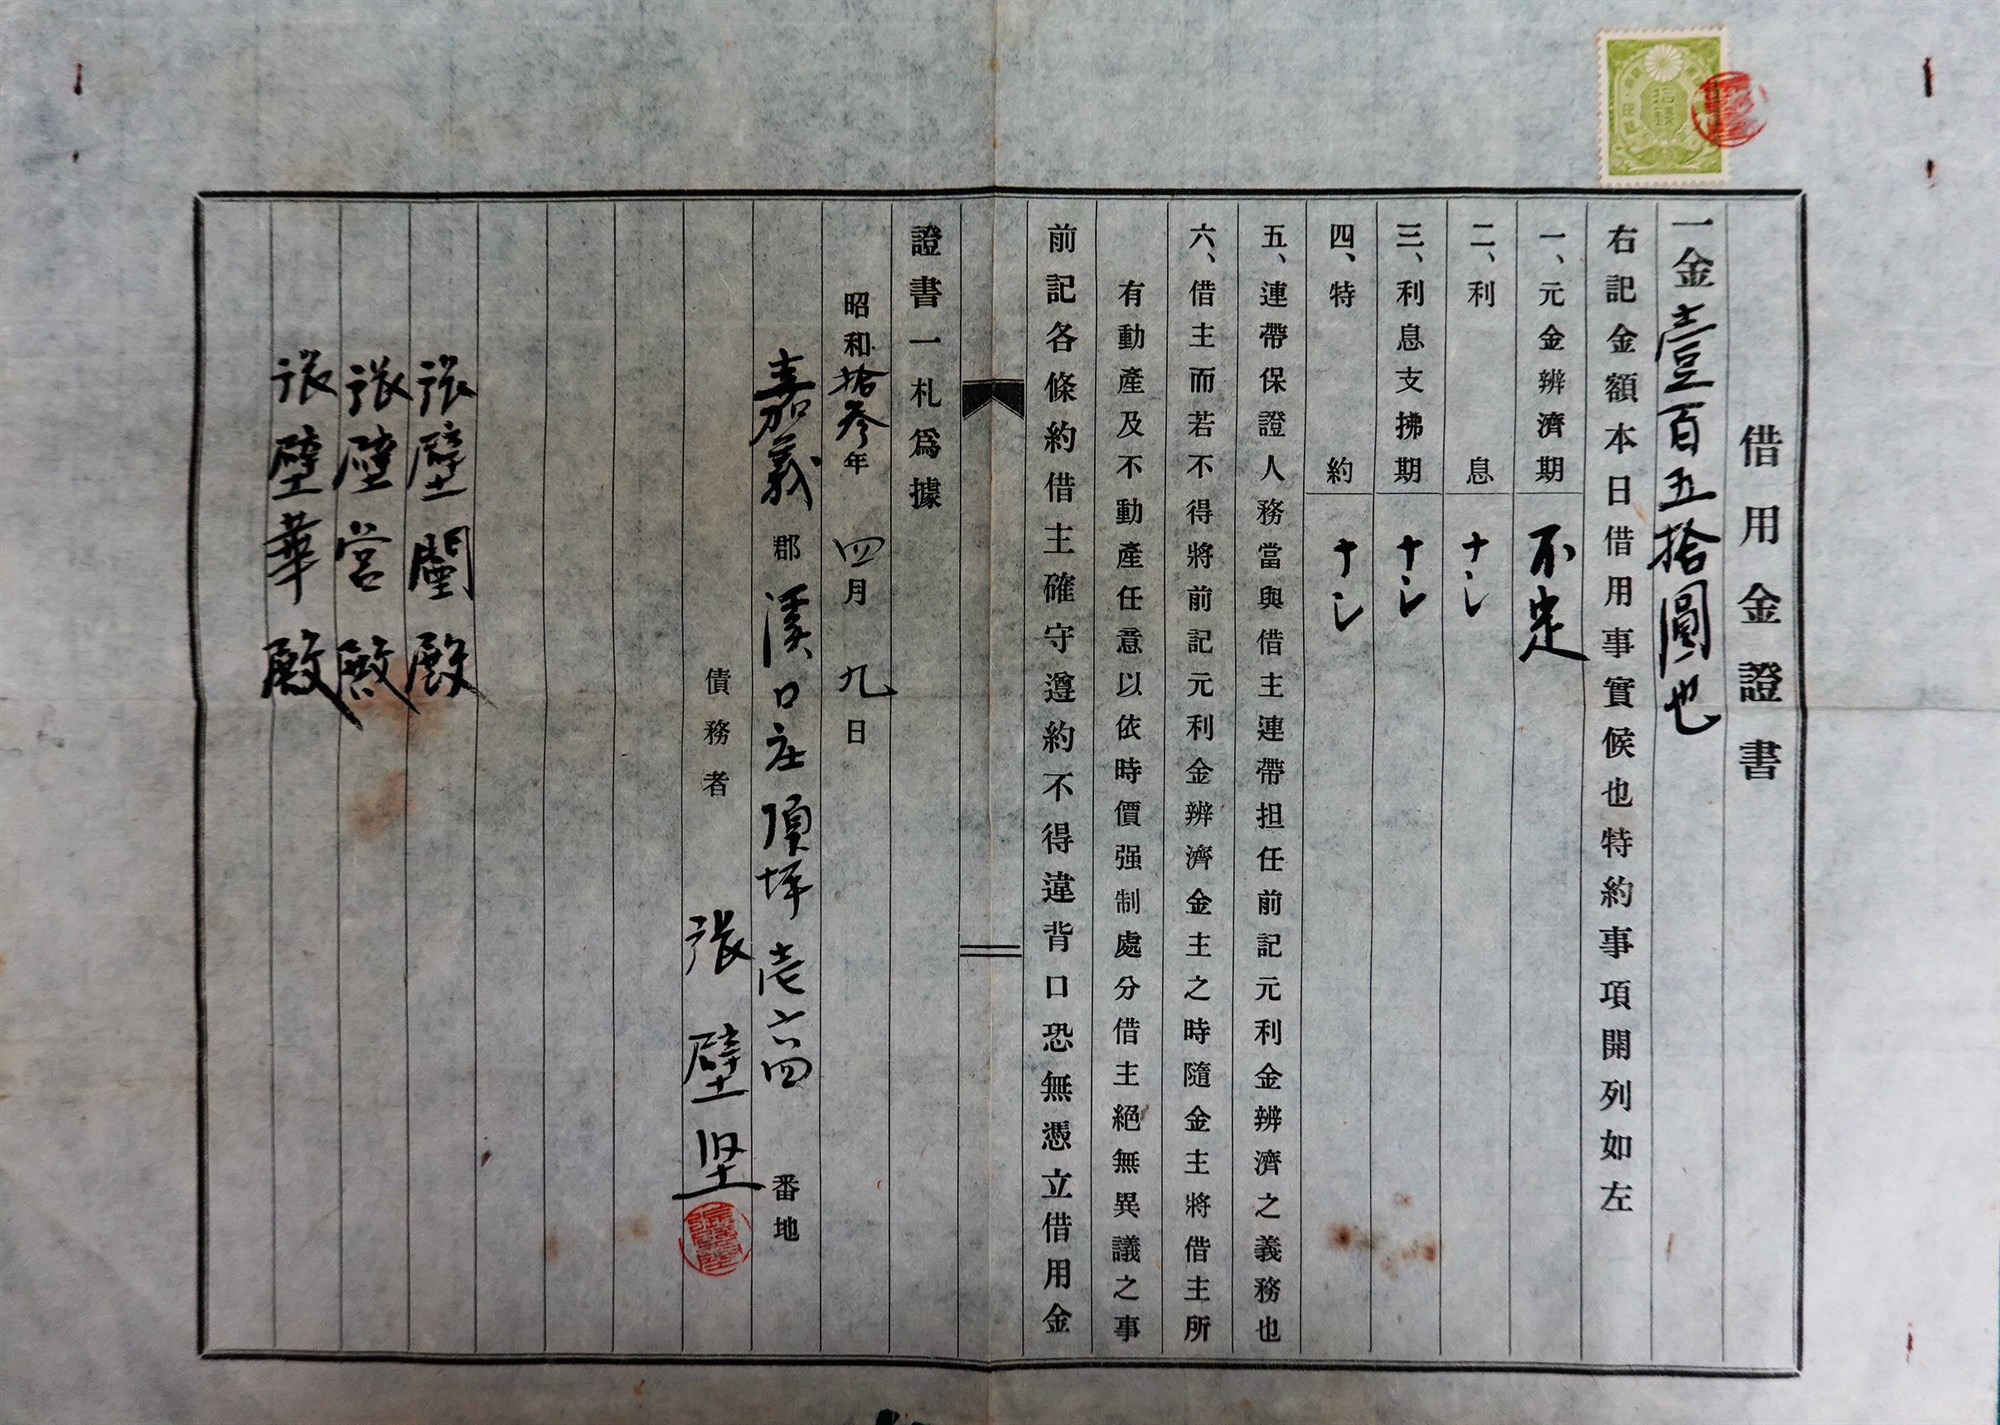 借用金證書
一金壹百五拾圓也
右記金額本日借用事實候也特約事項開列如左
一、元金辨濟期 不定
二、利息 ナシ
三、利息支拂期 ナシ
四、特約 ナシ
五、連帶保證人務當與借主連帶担任前記元利金辨濟之義務也
六、借主而若不得將前記元利金辨濟金主之時隨金主將借主所
有動產及不動產任意以依時價强制處分借主絕無異議之事
前記各條約借主確守遵約不得違背口恐無憑立借用金
證書一札爲據
昭和拾參年四月九日
嘉義郡溪口庄頂坪壱六四番地
債務者 張壁坚
張壁闈殿
張壁宮殿
張壁華殿
拾錢